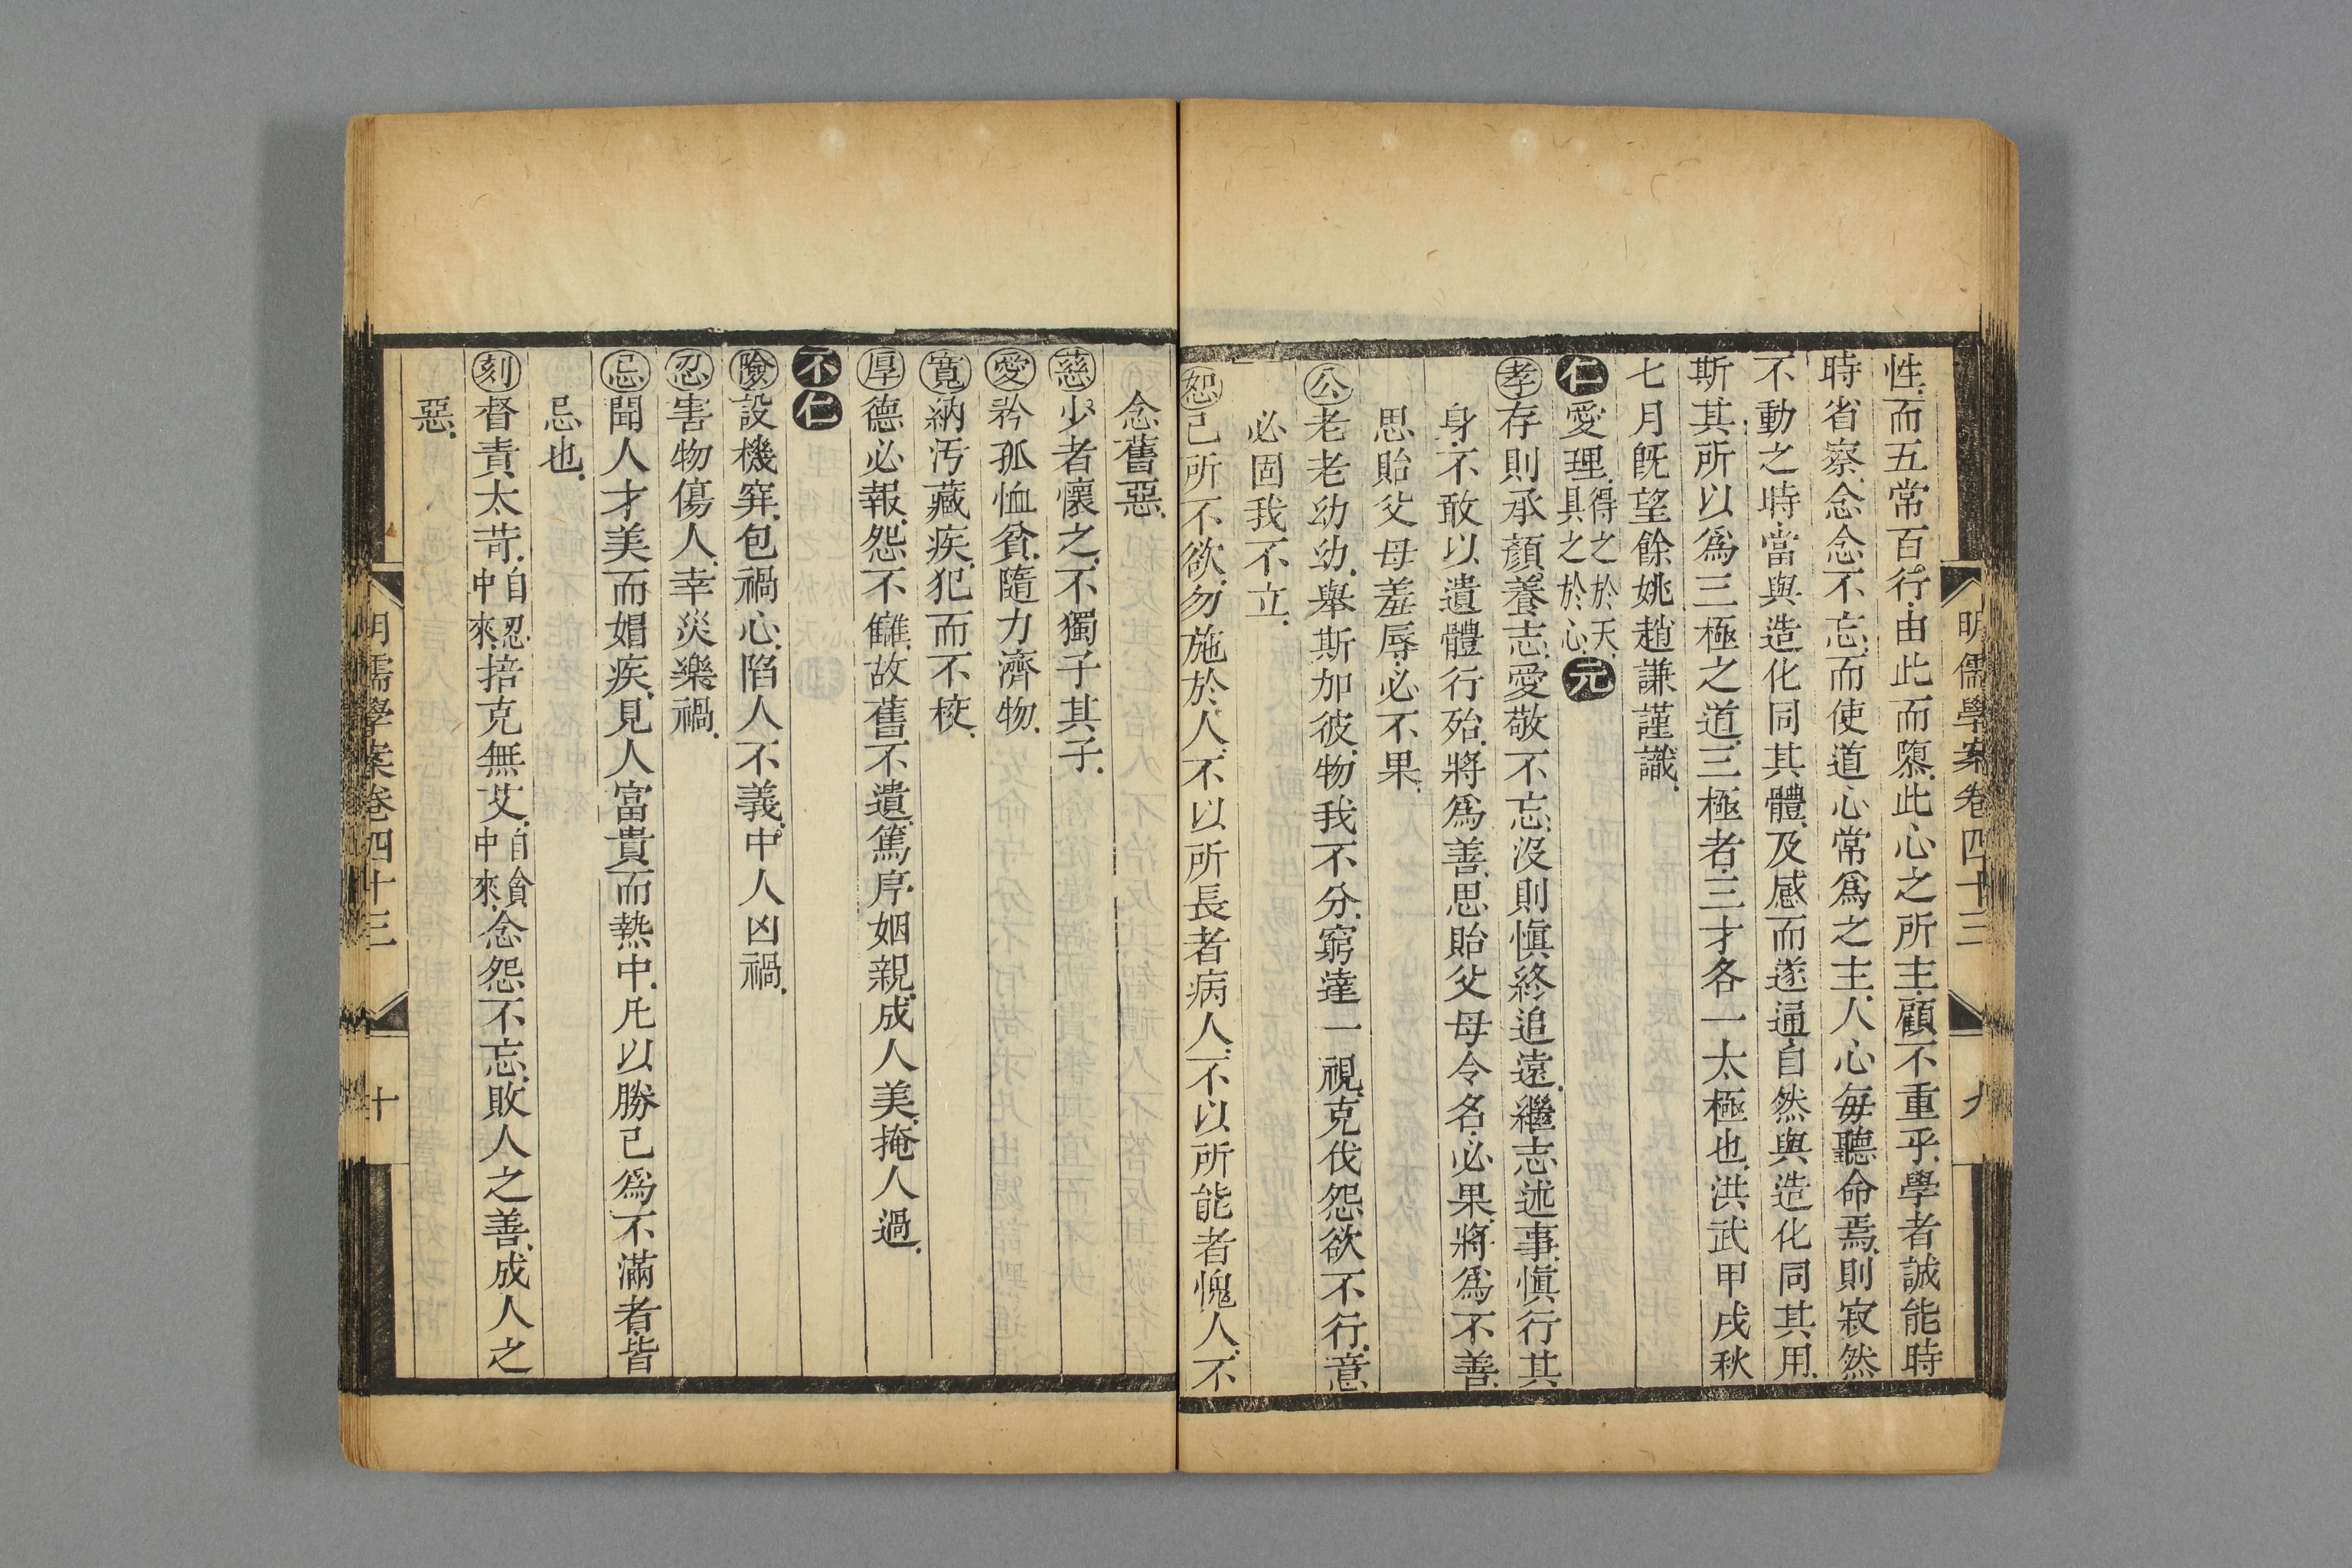 明儒學案卷四十三
九
性而五常百行由此而隳此心之所主顧不重乎學者誠能時
時省察念念不忘而使道心常爲之主人心每聽命焉則寂然
不動之時當與造化同其體及感而遂通自然與造化同其用
斯其所以爲三極之道三極者三才各一太極也洪武甲戌秋
七月旣望餘姚趙謙謹識
仁愛理得之於天具之於心元
孝存則承顏養志愛敬不忘沒則愼終追遠繼志述事愼行其
身不敢以遺體行殆將爲善思貽父母令名必果將爲不善
思貽父母羞辱必不果
公老老幼幼舉斯加彼物我不分窮達一視克伐怨欲不行意
必固我不立
恕己所不欲勿施於人不以所長者病人不以所能者愧人不
念舊惡
慈少者懷之不獨子其子
愛矜孤恤貧隨力濟物
寬納汚藏疾犯而不校
厚德必報怨不讎故舊不遺篤序姻親成人美掩人過
不仁
險設機穽包禍心陷人不義中人凶禍
忍害物傷人幸災樂禍
忌聞人才美而媢疾見人富貴而熱中凡以勝己爲不滿者皆
忌也
刻督責太苛自忍中來掊克無艾自貪中來念怨不忘敗人之善成人之
惡
明儒學案卷四十三
十